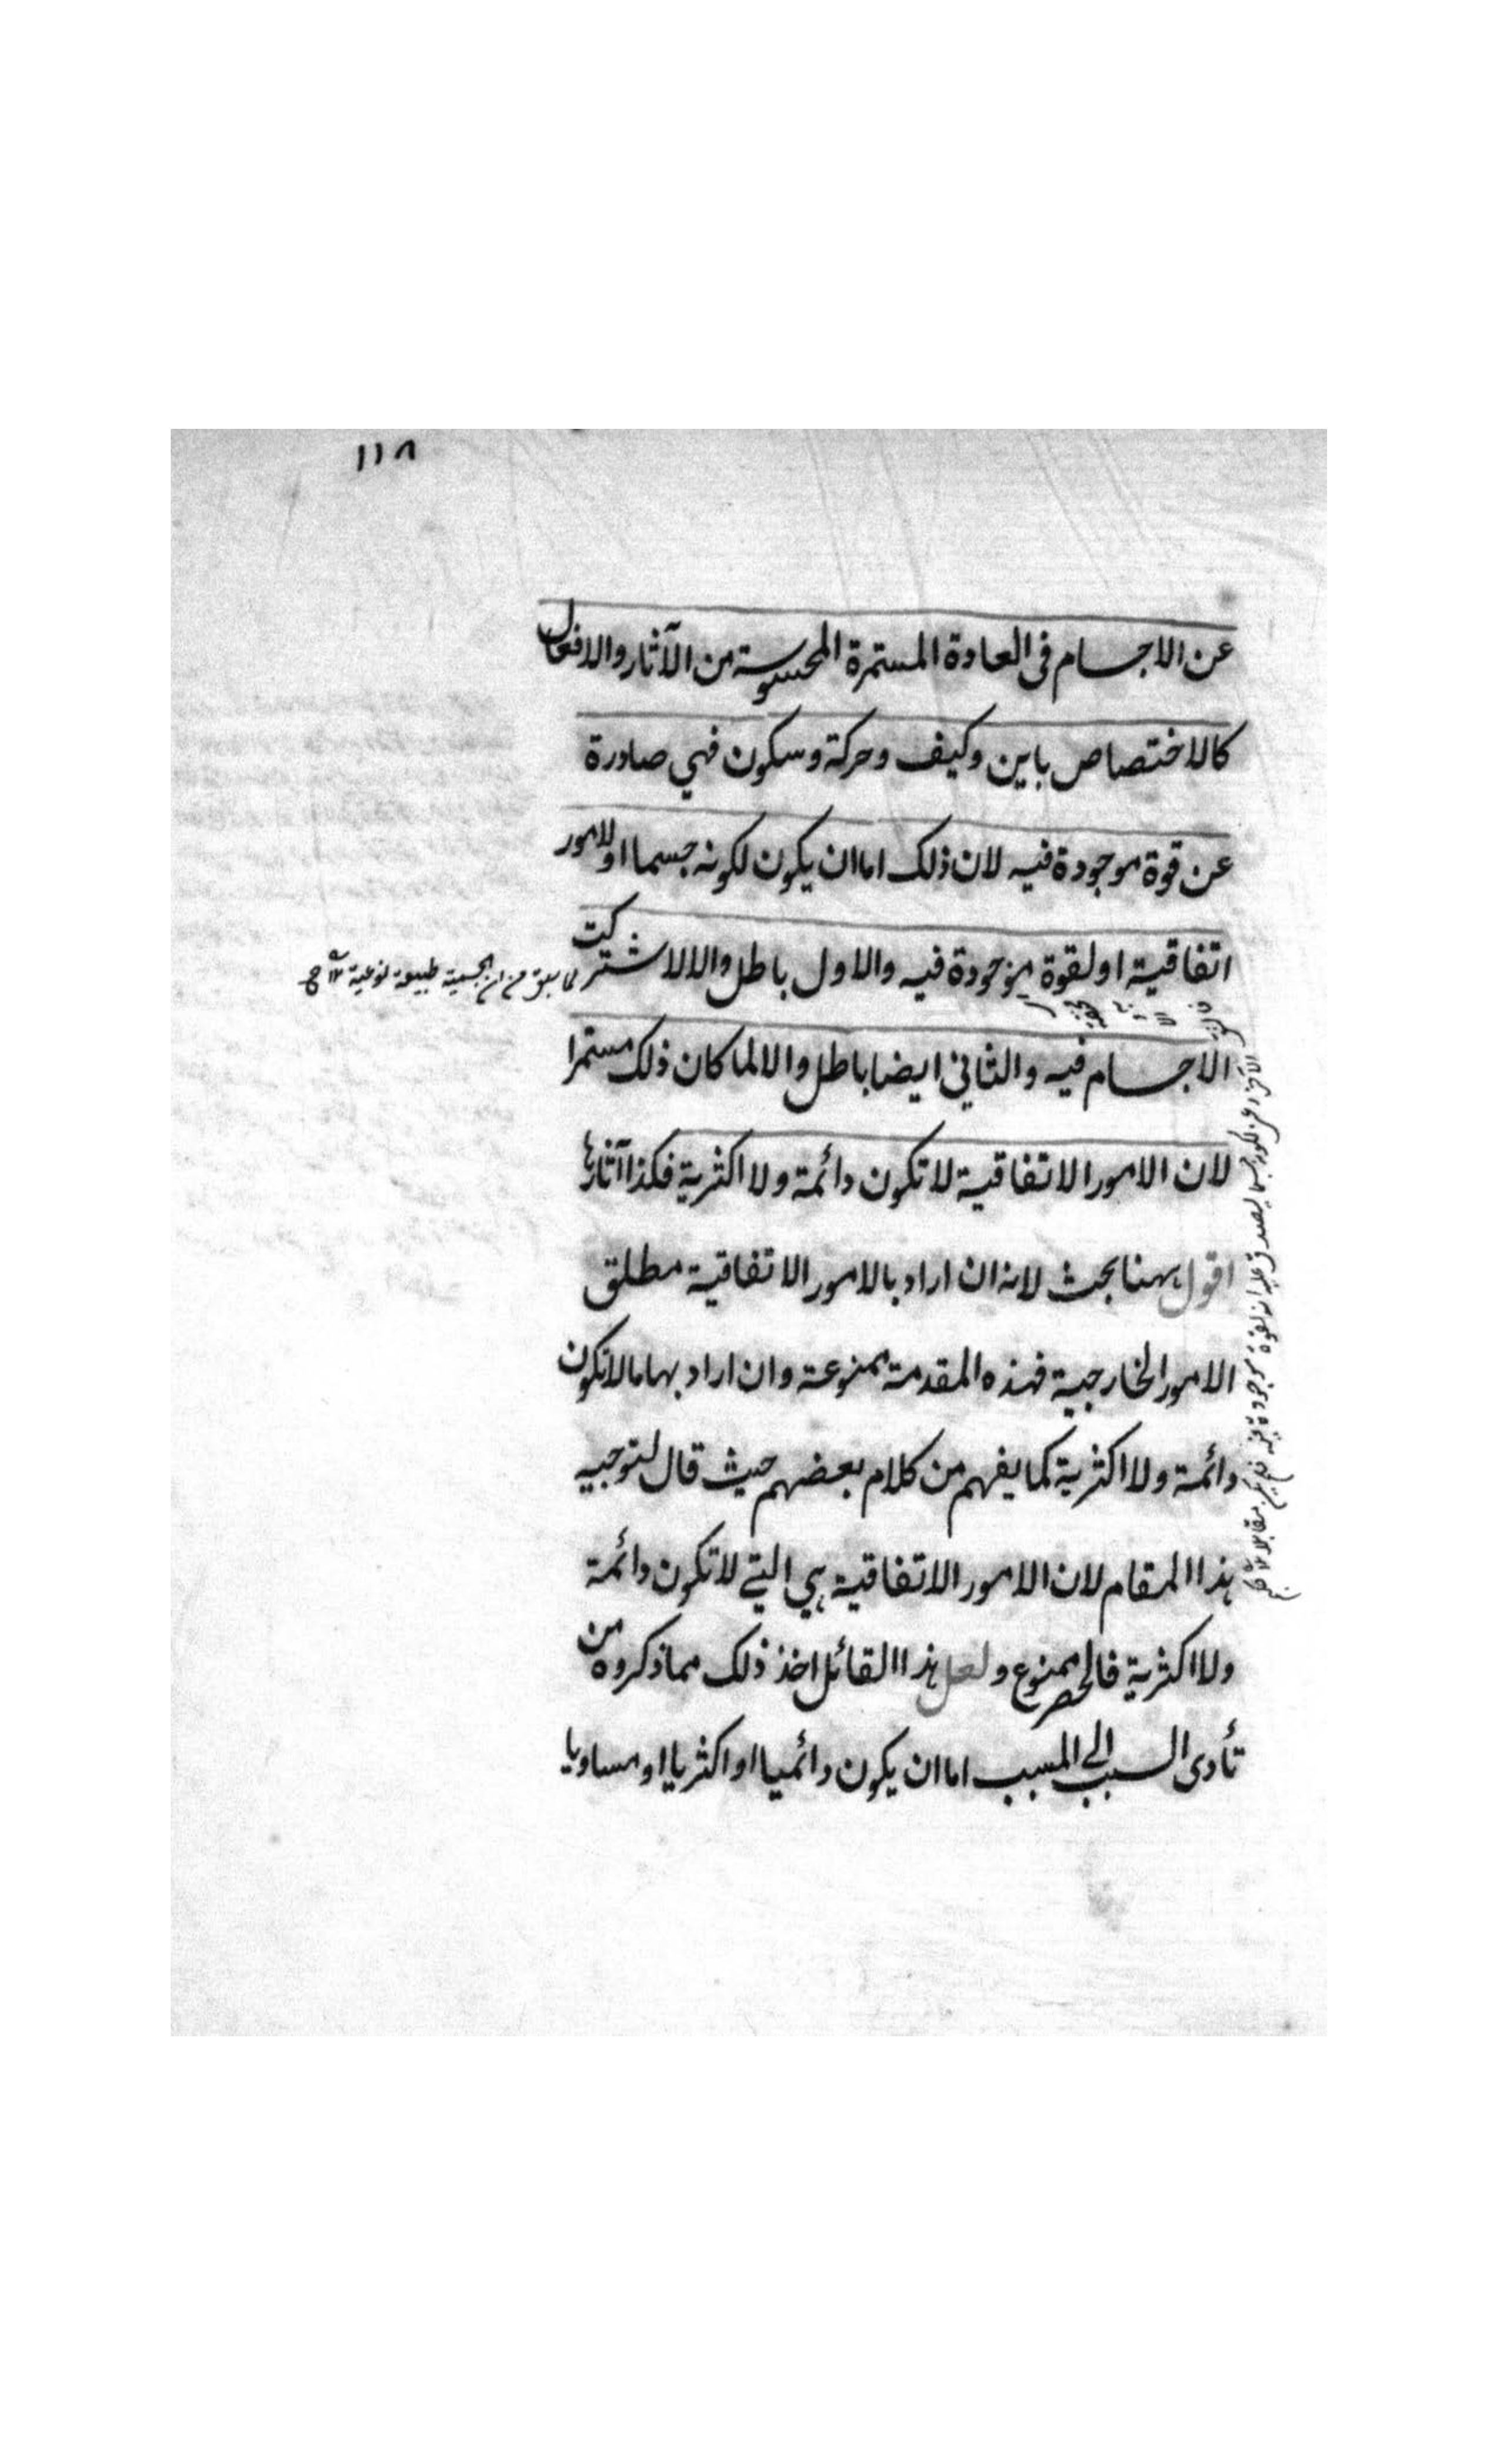 ١١٨
عن الاجسام فى العادة المستمرة المحسوسة من الآثار والافعال
كالاختصاص باين وكيف وحركة وسكون فهي صادرة
عن قوة موجودة فيه لان ذلك اما ان يكون لكونه جسما او لامور
اتفاقية او لقوة موجودة فيه والاول باطل والا لاشتركت
لما سبق من ان الجسمية طبيعة نوعية
الاجسام فيه والثاني ايضا باطل والا لما كان ذلك مستمرا
لان الامور الاتفاقية لا تكون دائمة ولا اكثرية فكذا آثارها
اقول ههنا بحث لانه ان اراد بالامور الاتفاقية مطلق
الامور الخارجية فهذه المقدمة ممنوعة وان اراد بها ما لا تكون
دائمة ولا اكثرية كما يفهم من كلام بعضهم حيث قال لتوجيه
هذا المقام لان الامور الاتفاقية هي التي لا تكون دائمة
ولا اكثرية فالحصر ممنوع ولعل هذا القائل اخذ ذلك مما ذكروه من
تأدى السبب الى المسبب اما ان يكون دائميا او اكثريا او مساويا
لكونه جسما يصدق عليه انه لقوة موجودة فيه